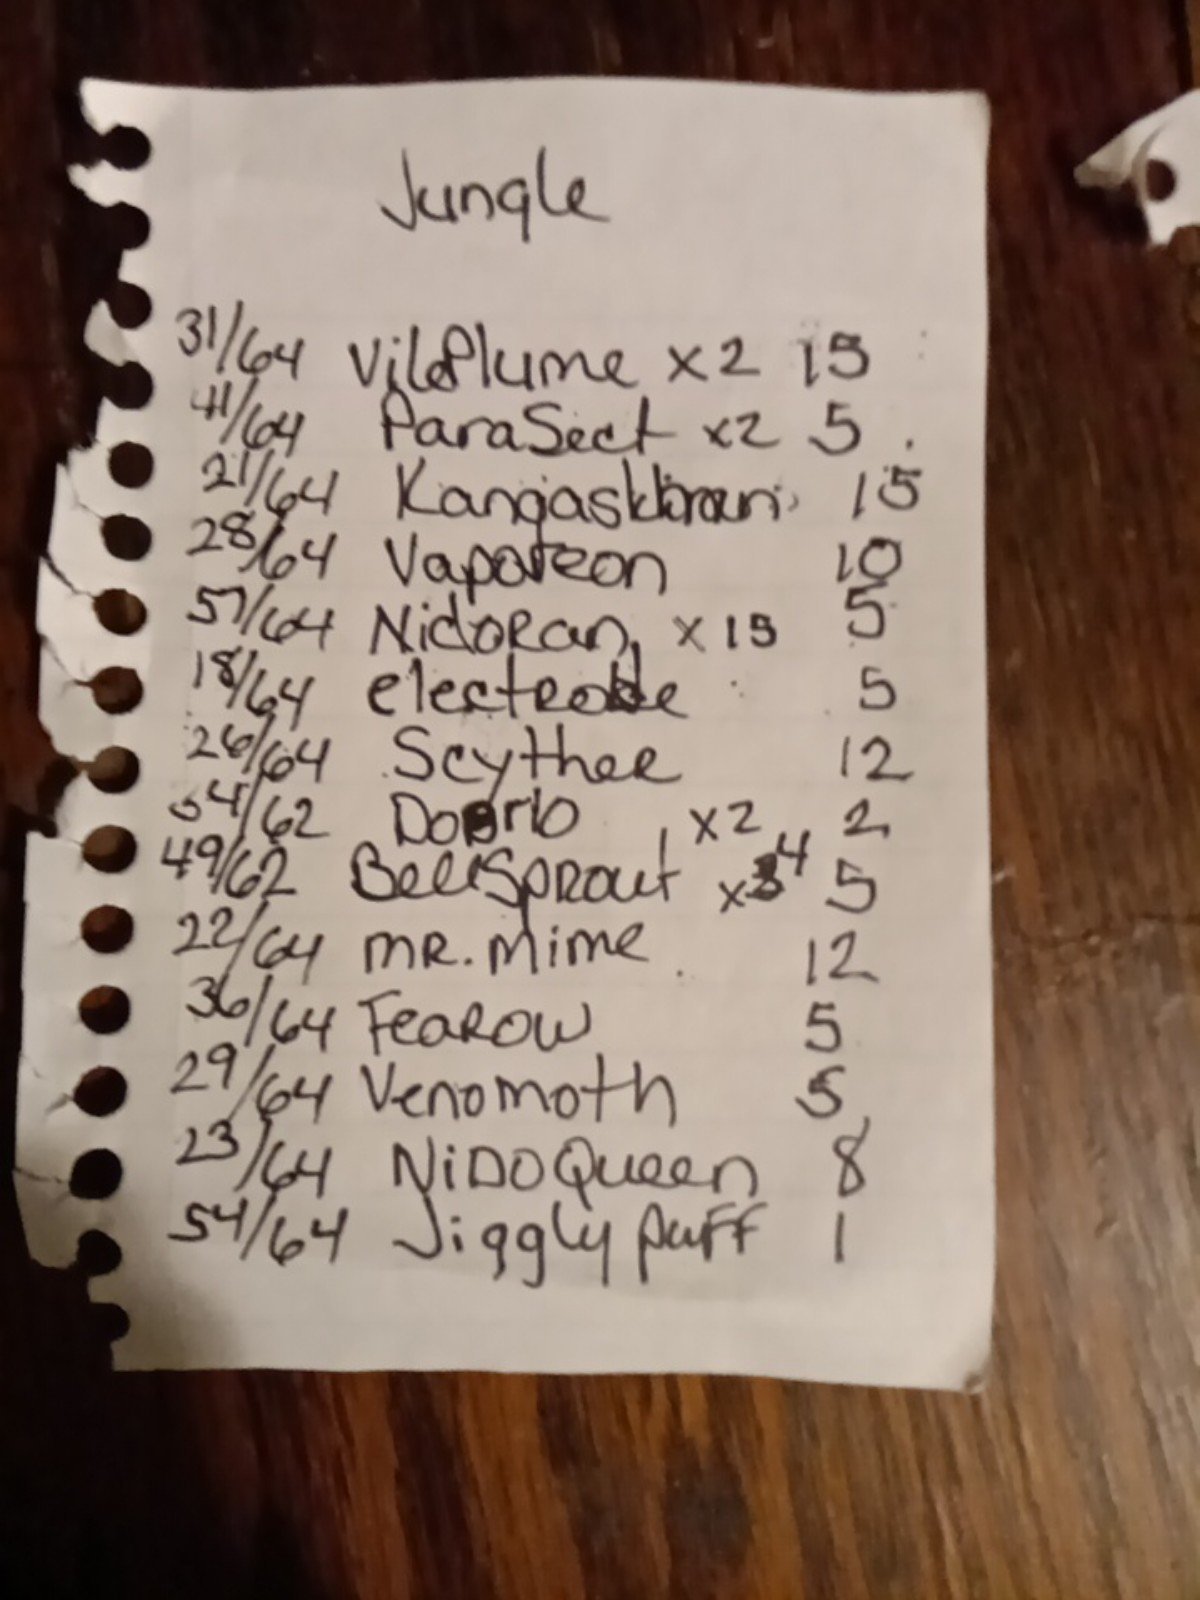 Jungle
31/64 Vileplume x2 15
41/64 ParaSect x2 5
21/64 Kangaskhan 15
28/64 Vaporeon 10
57/64 NidoRan x15 5
18/64 electrode 5
26/64 Scyther 12
54/62 x2 2
49/62 BellSprout x4 5
22/64 mR. Mime 12
36/64 FeaROW 5
29/64 Venomoth 5
23/64 NiDOQueen 8
54/64 Jigglypuff 1